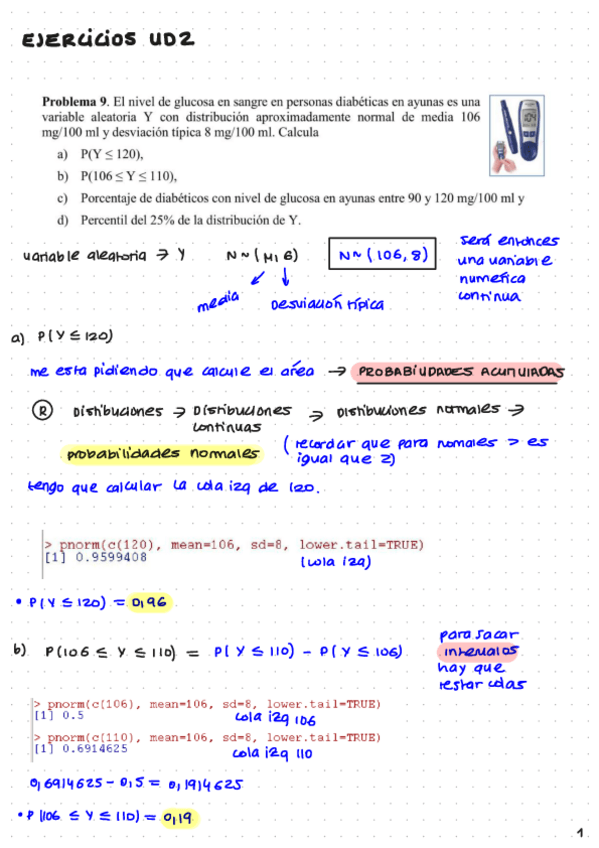 EJERCICIOS UD2
Problema 9. El nivel de glucosa en sangre en personas diabéticas en ayunas es una
variable aleatoria Y con distribución aproximadamente normal de media 106
mg/100 ml y desviación típica 8 mg/100 ml. Calcula
a) P(Y ≤ 120),
b) P(106 ≤ Y ≤ 110),
c) Porcentaje de diabéticos con nivel de glucosa en ayunas entre 90 y 120 mg/100 ml y
d) Percentil del 25% de la distribución de Y.
104
variable aleatoria → Y N~(μ, σ) N~(106,8)
será entonces
una variable
numerica
continua
media
Desviación típica
a) P(Y ≤ 120)
me esta pidiendo que calcule el area → PROBABILIDADES ACUMULADAS
R Distribuciones → Distribuciones continuas → Distribuciones normales →
probabilidades normales (recordar que para normales > es
igual que ≥)
tengo que calcular la cola izq de 120.
> pnorm(c(120), mean=106, sd=8, lower.tail=TRUE)
[1] 0.9599408
(cola izq)
• P(Y ≤ 120) = 0,96
b) P(106 ≤ Y ≤ 110) = P(Y ≤ 110) - P(Y ≤ 106)
para sacar
intervalos
hay que
restar colas
> pnorm(c(106), mean=106, sd=8, lower.tail=TRUE)
[1] 0.5 cola izq 106
> pnorm(c(110), mean=106, sd=8, lower.tail=TRUE)
[1] 0.6914625 cola izq 110
0,6914625 - 0,5 = 0,1914625
• P(106 ≤ Y ≤ 110) = 0,19
1